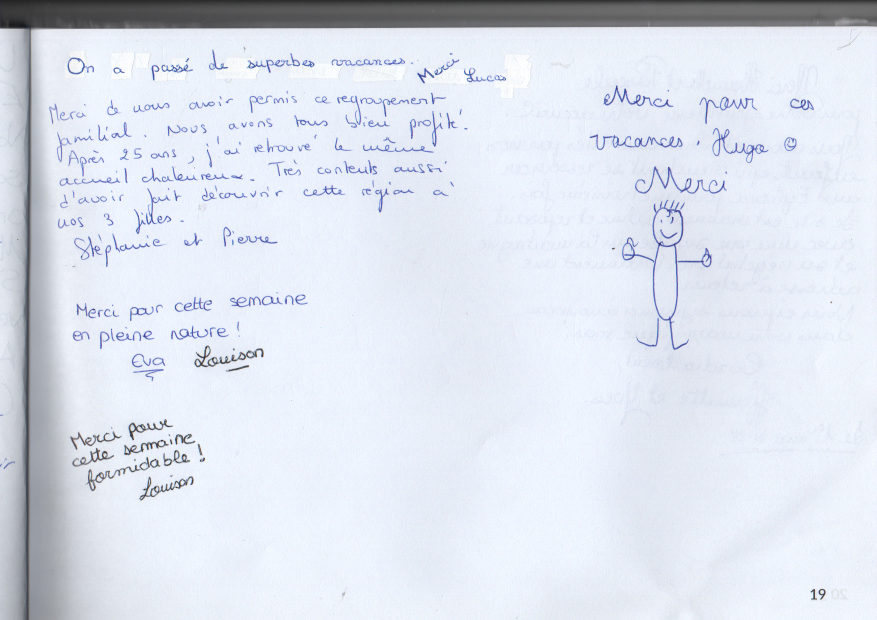 On a passé de superbes vacances.
Merci Lucas
Merci de nous avoir permis ce regroupement
familial. Nous avons tous bien profité.
Après 25 ans, j'ai retrouvé le même
accueil chaleureux. Très contents aussi
d'avoir fait découvrir cette région à
nos 3 filles.
Stéphanie et Pierre
Merci pour cette semaine
en pleine nature !
Eva Louison
Merci pour
cette semaine
formidable !
Louison
Merci pour ces
vacances. Hugo
Merci
19